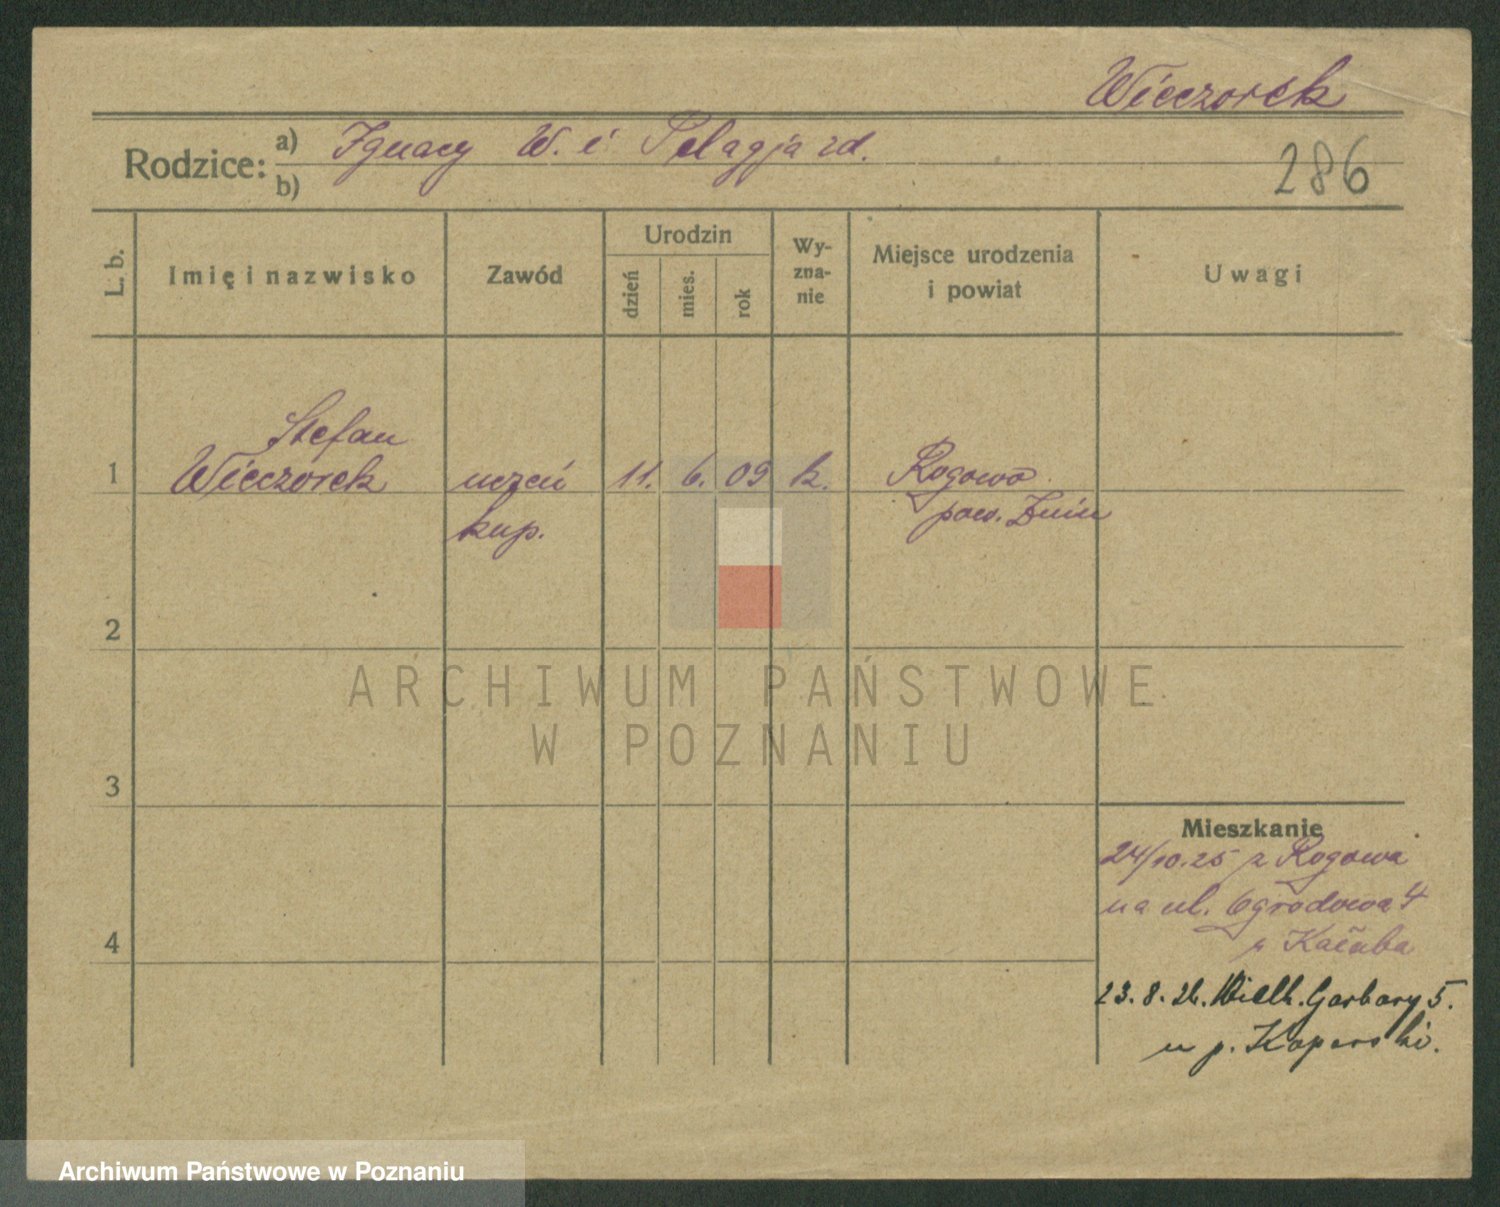 Wieczorek
Rodzice: a) Ignacy W. i Pelagja zd.
b)
286
L. b.
Imię i nazwisko
Zawód
Urodzin
dzień
mies.
rok
Wy-
zna-
nie
Miejsce urodzenia
i powiat
Uwagi
Stefan
1 Wieczorek uczeń 11. 6. 09 k. Rogowo
kup. pow. Żnin
2
ARCHIWUM PAŃSTWOWE
W POZNANIU
3
Mieszkanie
24/10.25 z Rogowa
na ul. Ogrodowa 4
4
23.8.26. Wielk. Garbary 5.
u p.
Archiwum Państwowe w Poznaniu